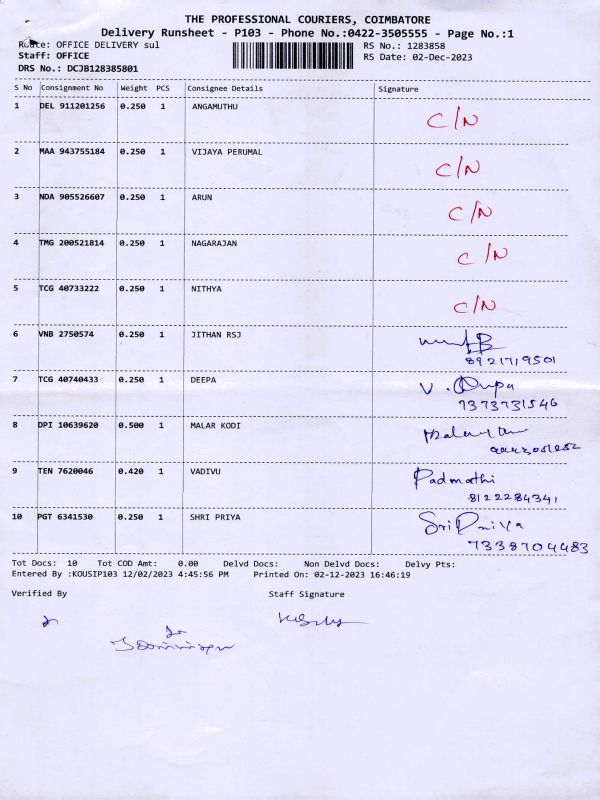 THE PROFESSIONAL COURIERS, COIMBATORE
Delivery Runsheet - P103 - Phone No.:0422-3505555 - Page No.:1
Route: OFFICE DELIVERY sul RS No.: 1283858
Staff: OFFICE RS Date: 02-Dec-2023
DRS No.: DCJB128385801
S No Consignment No Weight PCS Consignee Details Signature
1 DEL 911201256 0.250 1 ANGAMUTHU C/N
2 MAA 943755184 0.250 1 VIJAYA PERUMAL C/N
3 NDA 905526607 0.250 1 ARUN C/N
4 TMG 200521814 0.250 1 NAGARAJAN C/N
5 TCG 40733222 0.250 1 NITHYA C/N
6 VNB 2750574 0.250 1 JITHAN RSJ
8921719501
7 TCG 40740433 0.250 1 DEEPA V. Deepa
7373731546
8 DPI 10639620 0.500 1 MALAR KODI
9 TEN 7620046 0.420 1 VADIVU Padmathi
8122284341
10 PGT 6341530 0.250 1 SHRI PRIYA Sri Priya
7338704483
Tot Docs: 10 Tot COD Amt: 0.00 Delvd Docs: Non Delvd Docs: Delvy Pts:
Entered By :KOUSIP103 12/02/2023 4:45:56 PM Printed On: 02-12-2023 16:46:19
Verified By Staff Signature